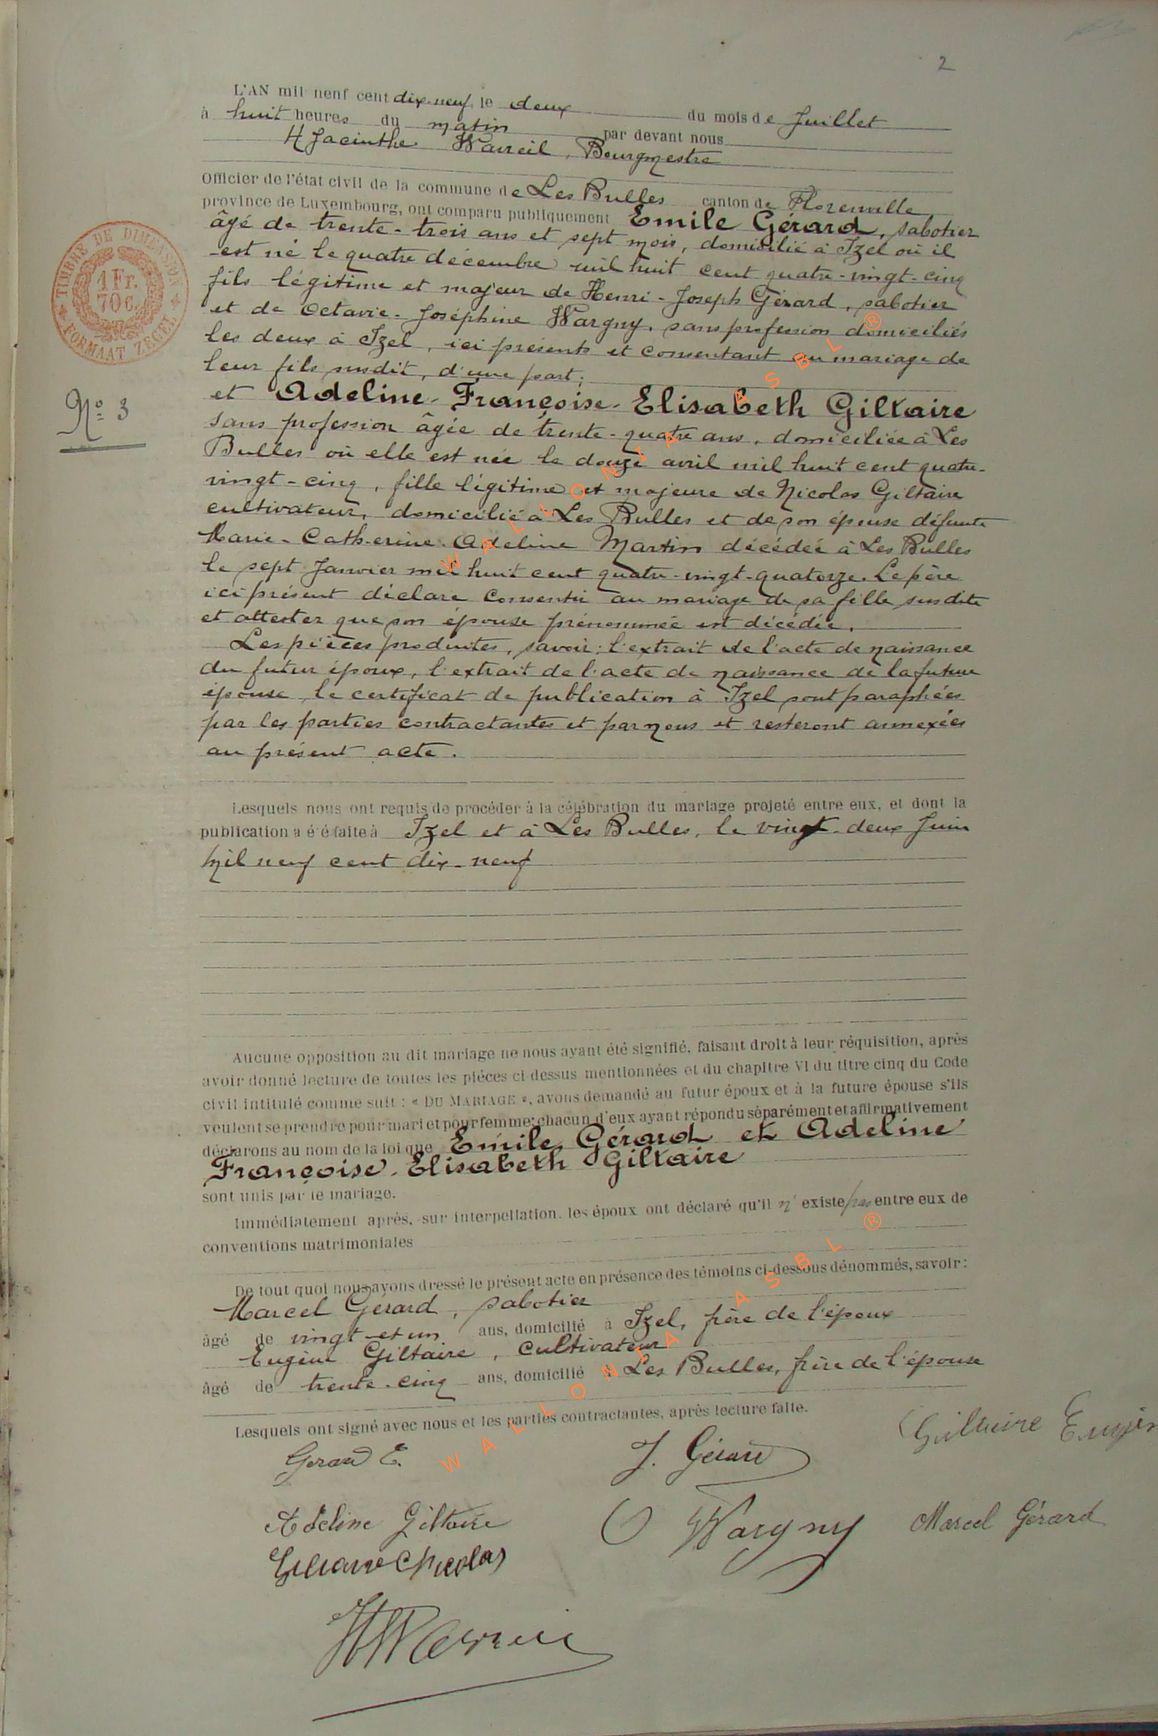 2
L'AN mil neuf cent dix-neuf, le deux du mois de Juillet
à huit heures du matin par devant nous
H Jacinthe Bourgmestre
Officier de l'état civil de la commune de Les Bulles canton de Florenville
province de Luxembourg, ont comparu publiquement Emile Gérard, sabotier
âgé de trente-trois ans et sept mois, domicilié à Izel où il
est né le quatre décembre mil huit cent quatre-vingt-cinq
fils légitime et majeur de Henri-Joseph Gérard, sabotier
et de Octavie-Joséphine Wargny, sans profession domiciliés
les deux à Izel, ici présents et consentant au mariage de
leur fils susdit, d'une part;
et Adeline-Françoise-Elisabeth Giltaire
sans profession âgée de trente-quatre ans, domiciliée à Les
Bulles où elle est née le douze avril mil huit cent quatre-
vingt-cinq, fille légitime et majeure de Nicolas Giltaire
cultivateur, domicilié à Les Bulles et de son épouse défunte
Marie-Catherine-Adeline Martin décédée à Les Bulles
le sept Janvier mil huit cent quatre-vingt-quatorze. Le père
ici présent déclare consentir au mariage de sa fille susdite
et attester que son épouse prénommée est décédée.
Les pièces produites, savoir: l'extrait de l'acte de naissance
du futur époux, l'extrait de l'acte de naissance de la future
épouse le certificat de publication à Izel sont paraphées
par les parties contractantes et par nous et resteront annexées
au présent acte.
TIMBRE DE DIMENSION
1 Fr.
70 c.
FORMAAT ZEGEL
N° 3
Lesquels nous ont requis de procéder à la célébration du mariage projeté entre eux, et dont la
publication a été faite à Izel et à Les Bulles, le vingt-deux Juin
mil neuf cent dix-neuf
Aucune opposition au dit mariage ne nous ayant été signifié, faisant droit à leur réquisition, après
avoir donné lecture de toutes les pièces ci-dessus mentionnées et du chapitre VI du titre cinq du Code
civil intitulé comme suit : « DU MARIAGE », avons demandé au futur époux et à la future épouse s'ils
veulent se prendre pour mari et pour femme; chacun d'eux ayant répondu séparément et affirmativement
déclarons au nom de la loi que Emile Gérard et Adeline
Françoise-Elisabeth Giltaire
sont unis par le mariage.
Immédiatement après, sur interpellation, les époux ont déclaré qu'il n'existe pas entre eux de
conventions matrimoniales
De tout quoi nous avons dressé le présent acte en présence des témoins ci-dessous dénommés, savoir :
Marcel Gérard, sabotier
âgé de vingt-et-un ans, domicilié à Izel, frère de l'époux
Eugène Giltaire, cultivateur
âgé de trente-cinq ans, domicilié à Les Bulles, frère de l'épouse
Lesquels ont signé avec nous et les parties contractantes, après lecture faite.
Gerard E. J. Gérard Giltaire Eugèn
Adeline Giltaire O Wargny Marcel Gérard
Giltaire Nicolas
WALLONIA ASBL ®
WALLONIA ASBL ®